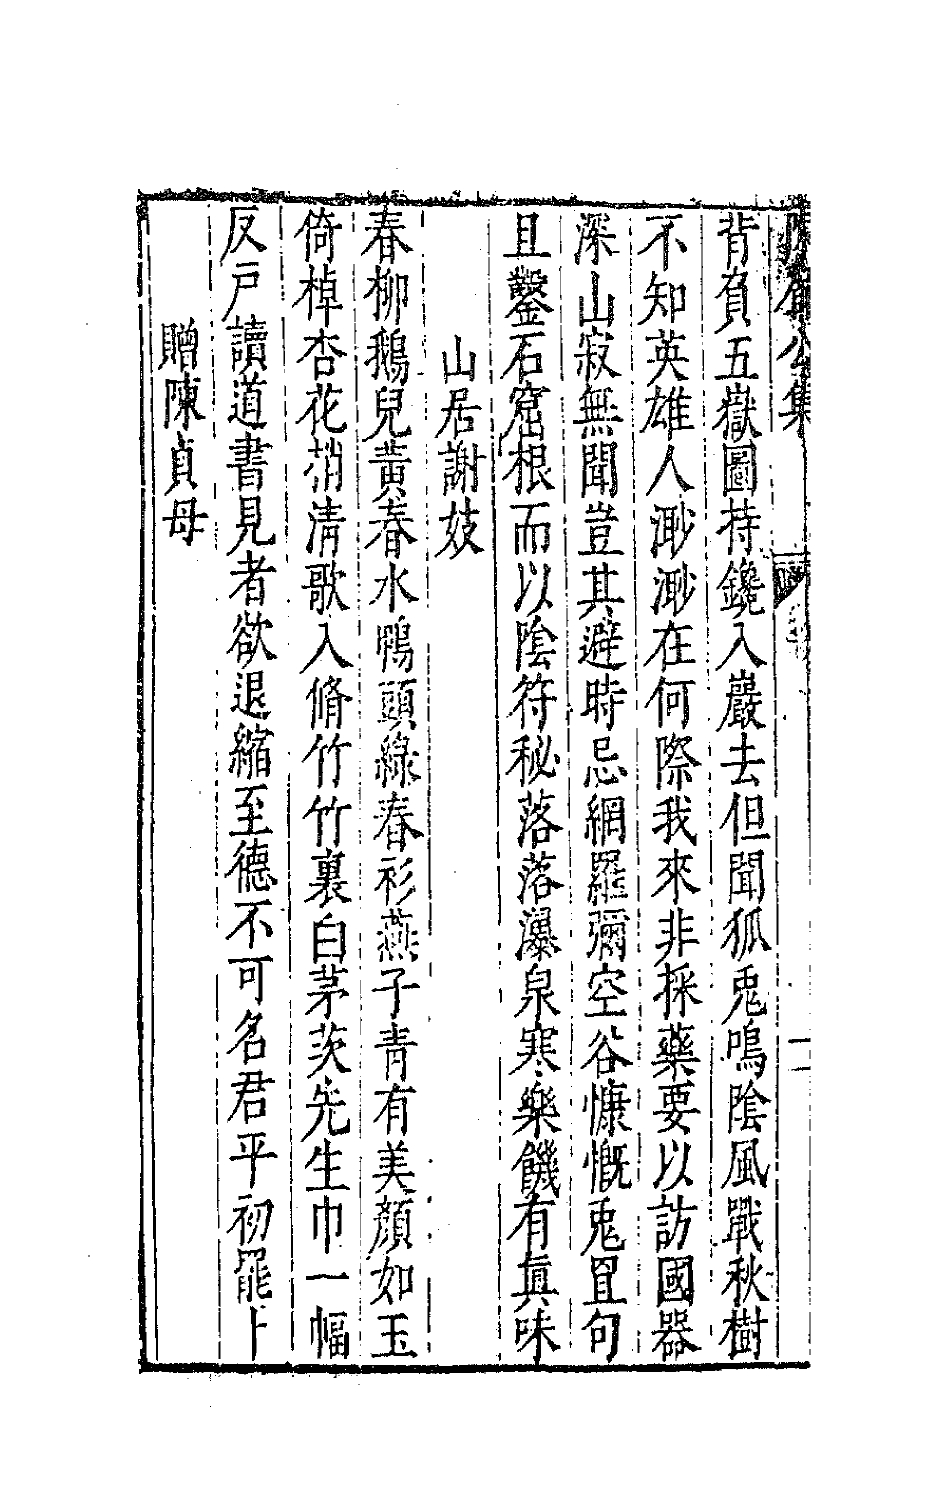 公集
背負五嶽圖持鑱入巖去但聞狐兎鳴隂風戰秋樹
不知英雄人渺渺在何際我來非採藥要以訪國器
深山寂無聞豈其避時忌網羅彌空谷慷慨兎罝句
且鑿石窟根而以隂符秘落落瀑泉寒樂饑有眞味
山居謝妓
春柳鵝兒黃春水鴨頭綠春衫燕子青有美顏如玉
倚棹杏花梢清歌入脩竹竹裏白茅茨先生巾一幅
反戶讀道書見者欲退縮至德不可名君平初罷卜
贈陳貞母